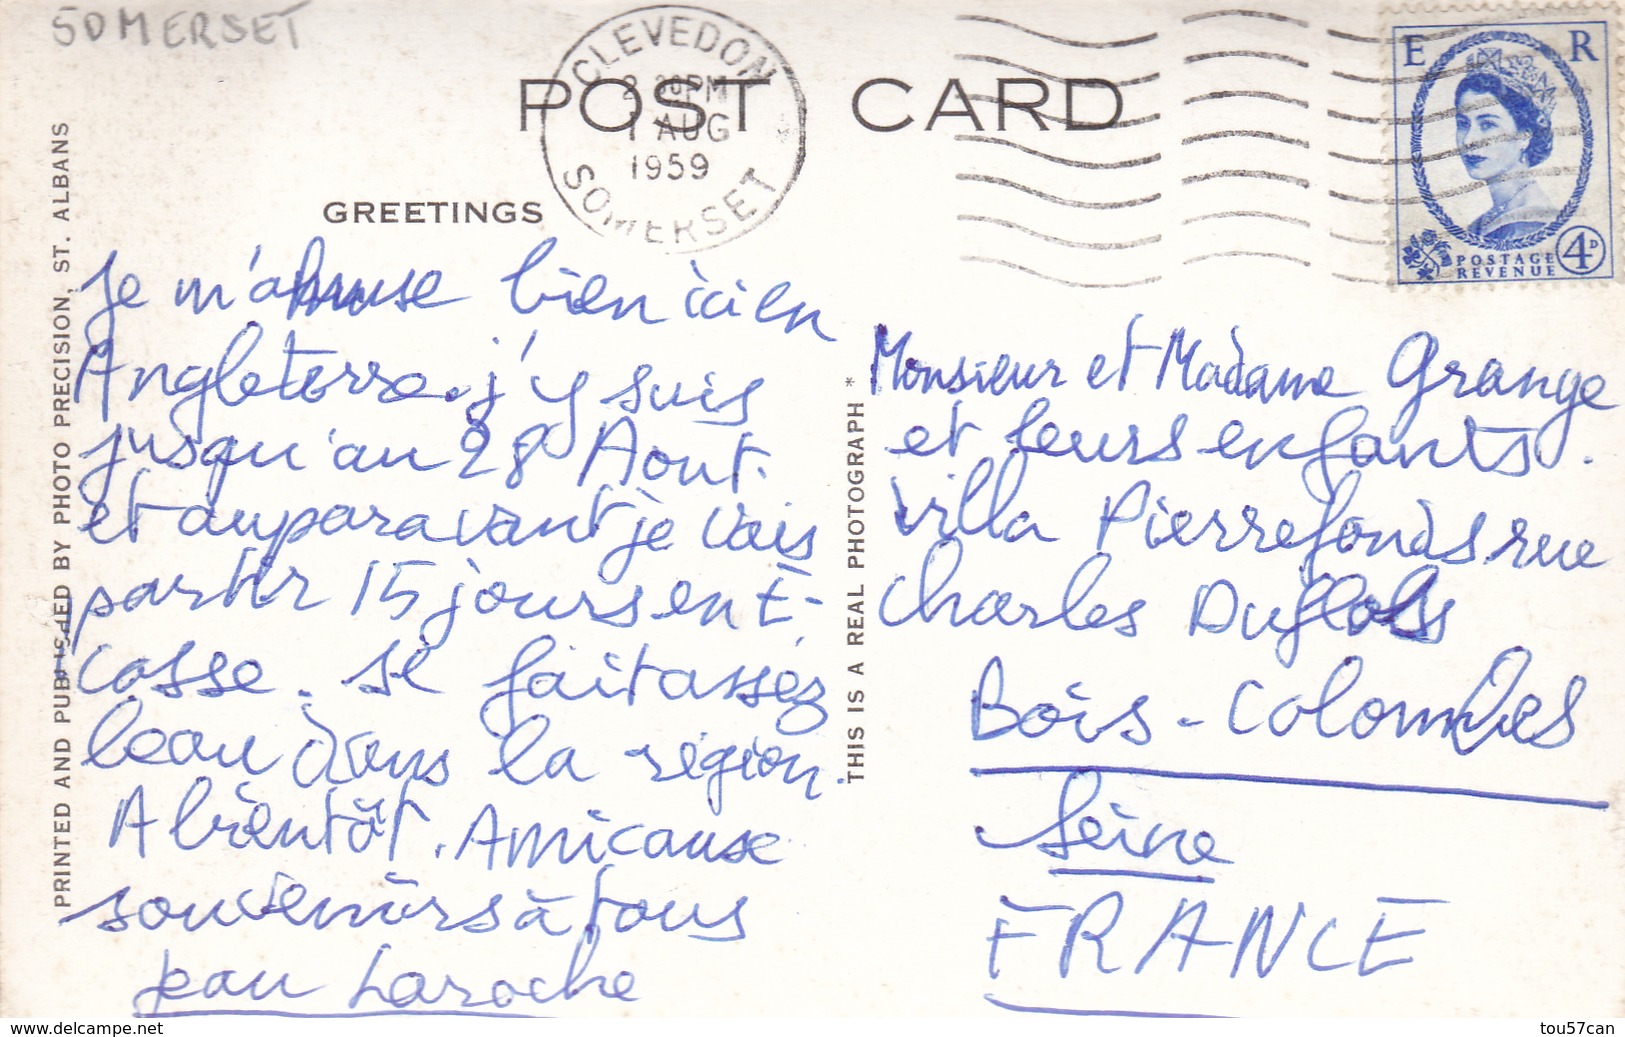 SOMERSET
CLEVEDON
2 30PM
1 AUG
1959
SOMERSET
POST CARD
E R
POSTAGE
REVENUE
4D
GREETINGS
Je m'amuse bien ici en
Angleterre. j'y suis
jusqu'au 28 Aout.
et auparavant je vais
partir 15 jours en É-
cosse. se fait assez
beau dans la région.
A bientôt. Amicause
souvenirs à tous
jean Laroche
Monsieur et Madame Grange
et leurs enfants.
Villa Pierrefonds rue
Charles Duflos
Bois-Colombes
Seine
FRANCE
PRINTED AND PUBLISHED BY PHOTO PRECISION, ST. ALBANS
THIS IS A REAL PHOTOGRAPH *
www.delcampe.net
tou57can